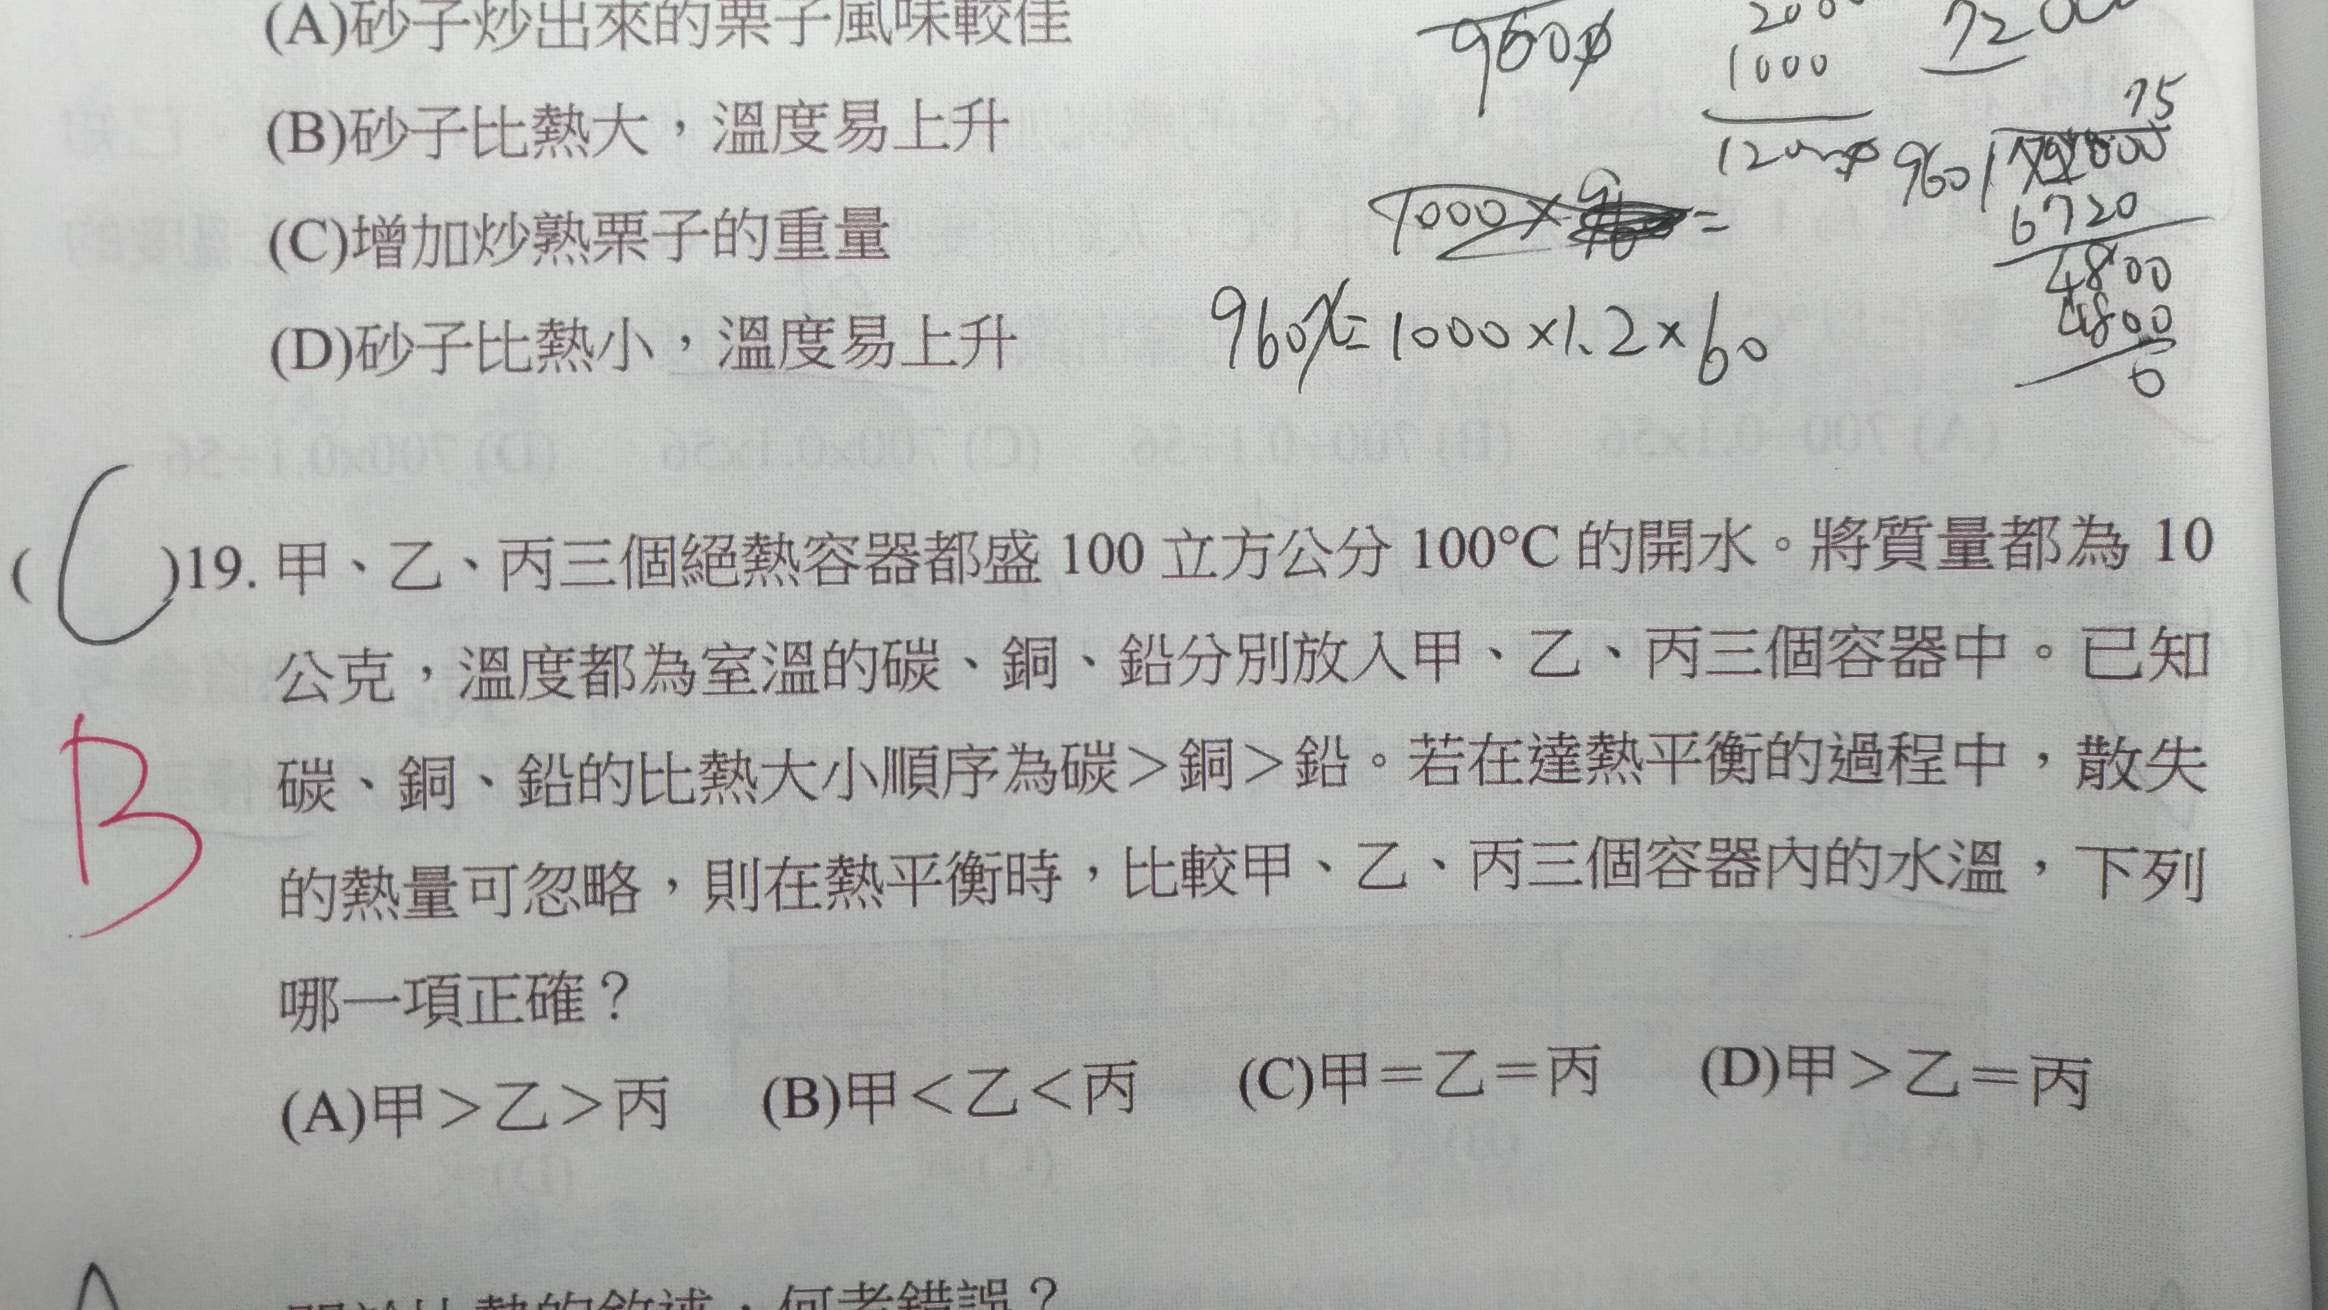 (A)砂子炒出來的栗子風味較佳
(B)砂子比熱大，溫度易上升
(C)增加炒熟栗子的重量
(D)砂子比熱小，溫度易上升
9600
1000
75
960
6720
4800
4800
0
1000×
=
960x=1000×1.2×60
(C)19. 甲、乙、丙三個絕熱容器都盛 100 立方公分 100°C 的開水。將質量都為 10
公克，溫度都為室溫的碳、銅、鉛分別放入甲、乙、丙三個容器中。已知
B
碳、銅、鉛的比熱大小順序為碳＞銅＞鉛。若在達熱平衡的過程中，散失
的熱量可忽略，則在熱平衡時，比較甲、乙、丙三個容器內的水溫，下列
哪一項正確？
(A)甲＞乙＞丙 (B)甲＜乙＜丙 (C)甲＝乙＝丙 (D)甲＞乙＝丙
比熱的敘述，何者錯誤？